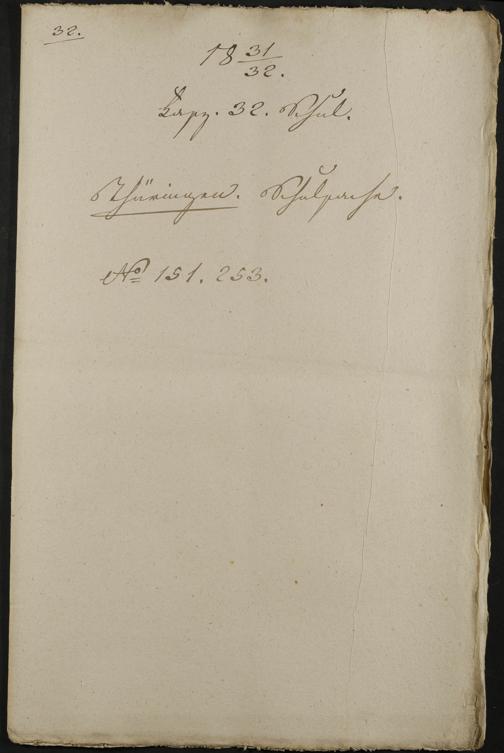 32.
18 31/32.
Kapz. 32. Schul.
Thüringen. Schulsache.
No 151. 253.